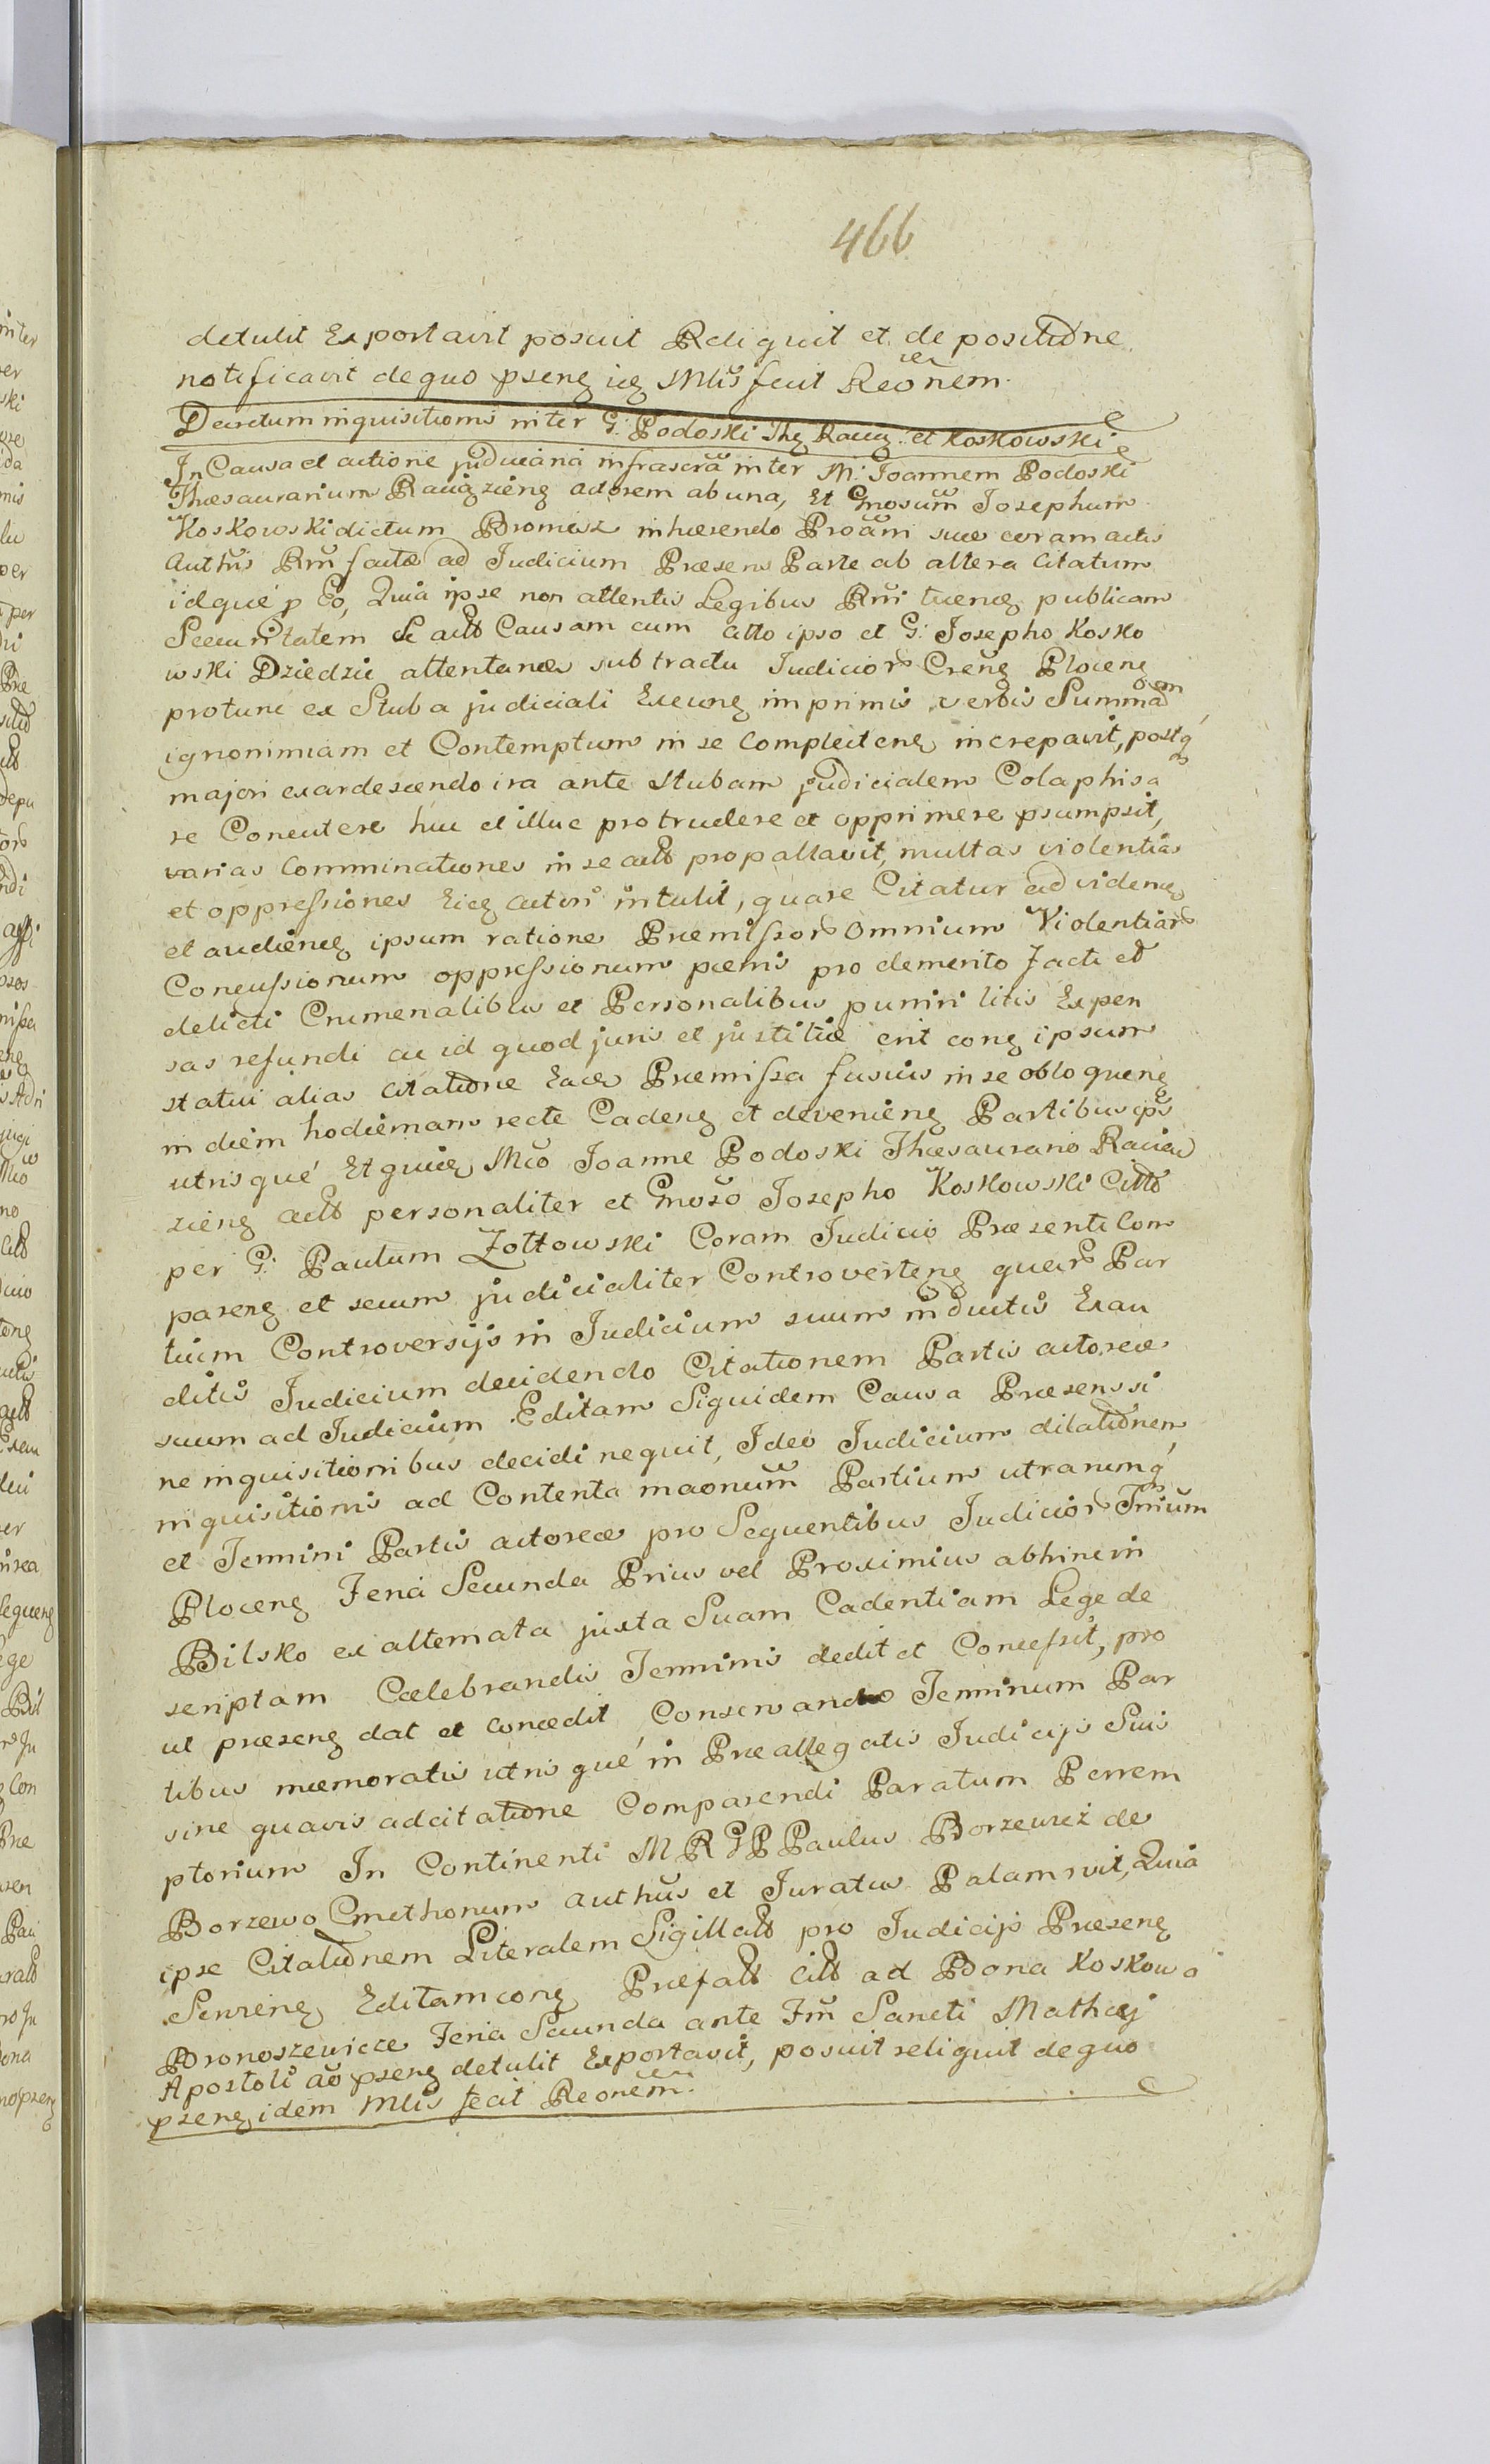 466.
detulit Exportavit posuit Reliquit et de positione
notificavit de quo pseng ieg Mlis fecit Reonem.
Decretum inquisitionis inter G: Podoski Thg Raug: et Koskowski
In Causa et actione judiciaria infrascra inter M: Joannem Podoski
Thesaurarium Raugzieng actorem ab una, Et Gnosum Josephum
Koskowski dictum Bromirz inhærendo Proani suæ coram actis
Authis Rm factæ ad Judicium Præsens Parte ab altera Citatum
idque p Eo, Quia ipse non attentis Legibus Rni tueneg publicam
Securitatem Se actt Causam cum citto ipso et G: Josepho Kosko
wski Dziedzic attentanes sub tractu Judicior Creng Ploceng
protunc ex Stuba judiciali Exeung imprimis verbis Summam
ignonimiam et Contemptum in se Complecteng increpavit, postq
majori exardescendo ira ante Stubam judicialem Colaphisa
re Concutere huc et illuc protrudere et opprimere psumpsit,
varias Comminationes in se actt propallavit, multas violentias
et oppressiones Eieg actori intulit, quare Citatur ad videng
et audieng ipsum ratione Præmissor Omnium Violentiar
Concussionum oppressionum pænis pro demerito facti et
delicti Crimenalibus et Personalibus puniri litis Expen
sas refundi ac id quod juris et justitiæ erit cong ipsum
statui alias citatione Eaca Præmissa fusius in se obloqueng
in diem hodiernam recte Cadeng et devenieng Partibus ips
utrisque Et quieg Mco Joanne Podoski Thesaurario Rawa
zieng actt personaliter et Gnoso Josepho Koskowski Citto
per G: Paulum Zoltowski Coram Judicio Præsenti Com
pareng et secum judicialiter Controverteng quar Par
tium Controversijs in Judicium suum inductis Exau
ditis Judicium decidendo Citationem Partis actoreæ
suum ad Judicium Editam Siquidem Causa Præsens si
ne inquisitionibus decidi nequit, Ideo Judicium dilationem
inquisitionis ad Contenta maonum Partium utrarumq
et Termini Partis actoreæ pro Sequentibus Judicior Trium
Ploceng Feria Secunda Prius vel Proximius abhinc in
Bilsko ex alternata juxta Suam Cadentiam Lege de
scriptam Cælebrandis Terminis dedit et Concessit, pro
ut præseng dat et concedit, Conservando Terminum Par
tibus mæmoratis utrisque in Præallegatis Judicijs Suis
sine quavis adcitatione Comparendi Paratum Perrem
ptorium In Continenti MRGP Paulus Borzewicz de
Borzewo Cmethonum authus et Juratus Palam rvit, Quia
ipse Citationem Literalem Sigillatt pro Judicijs Præseng
Servieng Editam cong Præfatt citt ad Bona Koskowo
Bronoszewicce Feria Secunda ante Fm Sancti Mathæj
Apostoli ao pseng detulit Exportavit, posuit reliquit de quo
pseng idem Mlis fecit Reonem.